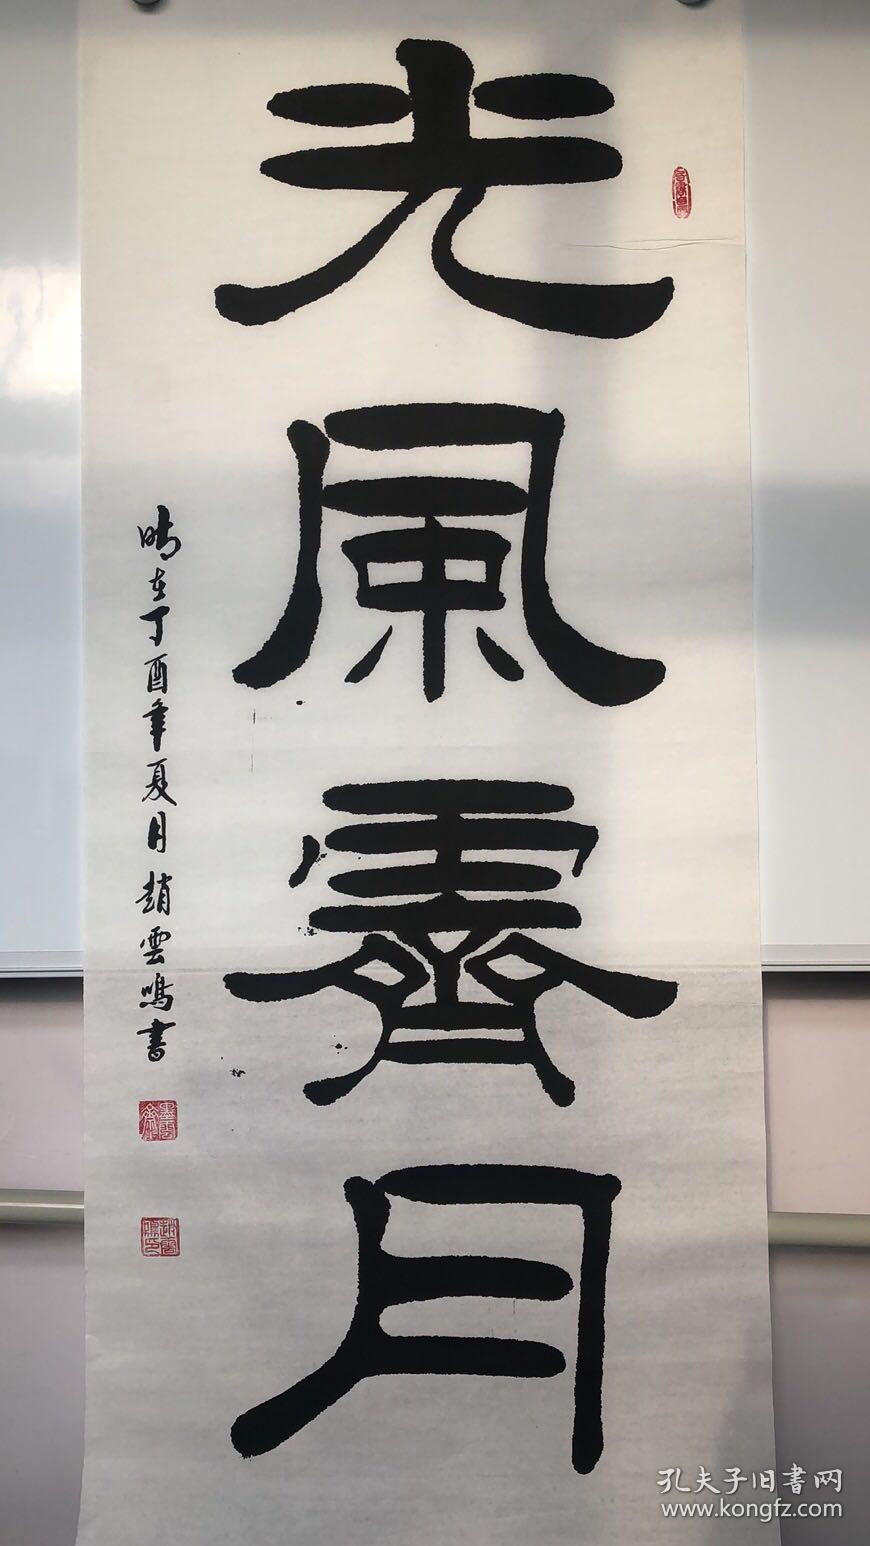 光風霽月
時在丁酉年夏月趙雲鳴書
孔夫子旧书网
www.kongfz.com